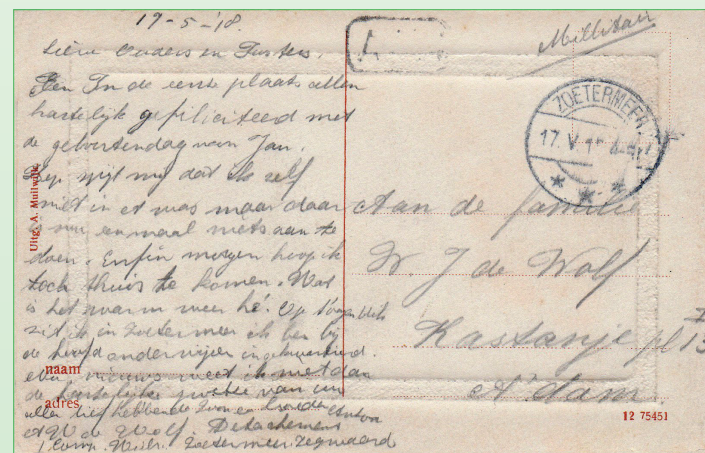 17-5-'18.
Lieve Ouders en Zusters.
In de eerste plaats allen
hartelijk gefiliciteerd met
de geboortendag van Jan.
spijt mij dat ik zelf
niet in was maar daar
is nu eenmaal niets aan te
doen. Enfin morgen hoop ik
toch thuis te komen. Wat
is het warm weer hé. Op 't oogenblik
zit ik in Zoetermeer ik ben bij
de hoofdonderwijzer ingekwartierd.
nieuws weet ik niet dan
de hartelijke groete van uw
allen liefhebbende Zoon en broeder
Anton
A W de Wolf. Detachement
Zoetermeer Zegwaard
Uitg. A. Muilwijk.
naam
adres
Millitair
ZOETERMEER
17. V. 1
Aan de familie
W. J de Wolf
Kastanje pl 13
A'dam.
12 75451